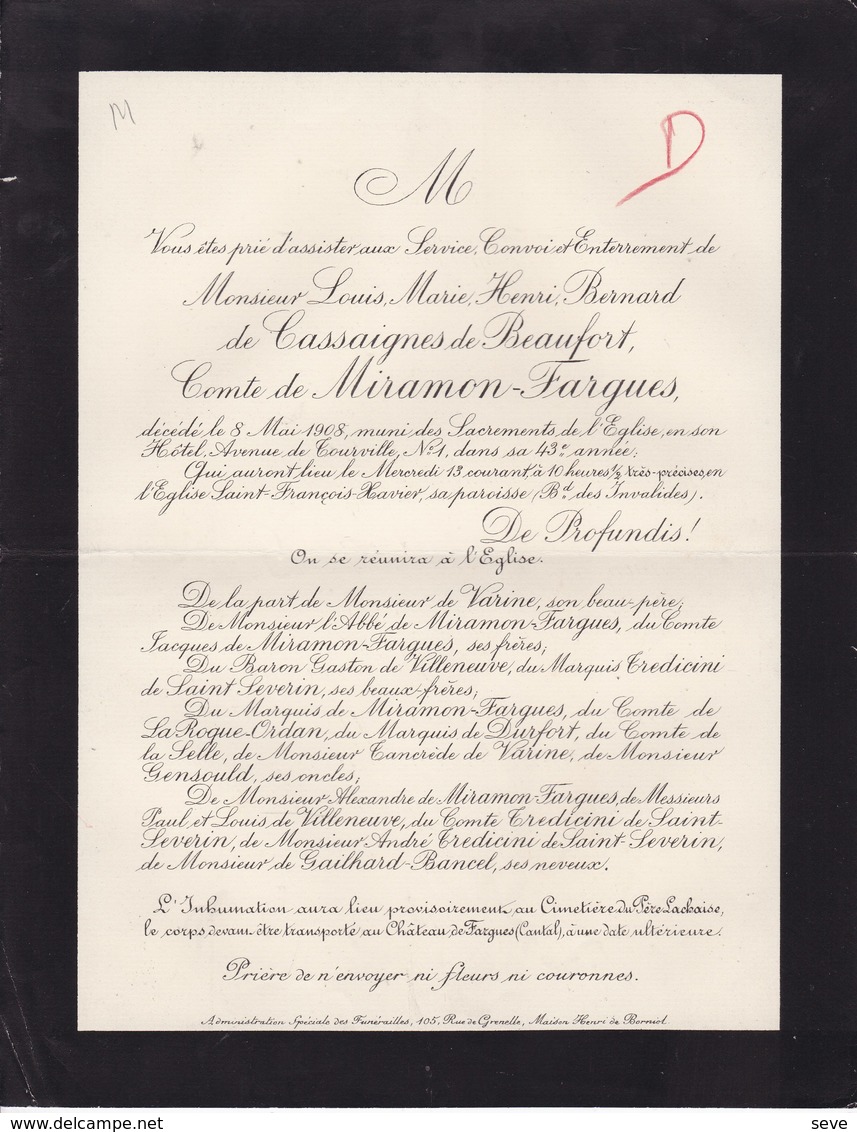 M
D
M
Vous êtes prié d'assister aux Service, Convoi et Enterrement de
Monsieur Louis, Marie, Henri, Bernard
de Cassaignes de Beaufort,
Comte de Miramon-Fargues,
décédé le 8 Mai 1908, muni des Sacrements de l'Eglise, en son
Hôtel, Avenue de Tourville, No. 1, dans sa 43e. année;
Qui auront lieu le Mercredi 13 courant, à 10 heures 1/2 très-précises, en
l'Eglise Saint-François-Xavier, sa paroisse (Bd. des Invalides).
De Profundis!
On se réunira à l'Eglise.
De la part de Monsieur de Varine, son beau-père;
De Monsieur l'Abbé de Miramon-Fargues, du Comte
Jacques de Miramon-Fargues, ses frères;
Du Baron Gaston de Villeneuve, du Marquis Tredicini
de Saint Severin, ses beaux-frères;
Du Marquis de Miramon-Fargues, du Comte de
La Roque-Ordan, du Marquis de Durfort, du Comte de
la Selle, de Monsieur Tancrède de Varine, de Monsieur
Gensould, ses oncles;
De Monsieur Alexandre de Miramon-Fargues, de Messieurs
Paul et Louis de Villeneuve, du Comte Tredicini de Saint-
Severin, de Monsieur André Tredicini de Saint-Severin,
de Monsieur de Gailhard-Bancel, ses neveux.
L'Inhumation aura lieu provisoirement au Cimetière du Père Lachaise,
le corps devant être transporté au Château de Fargues (Cantal), à une date ultérieure.
Prière de n'envoyer ni fleurs ni couronnes.
Administration Spéciale des Funérailles, 105, Rue de Grenelle, Maison Henri de Borniol.
delcampe.net
seve